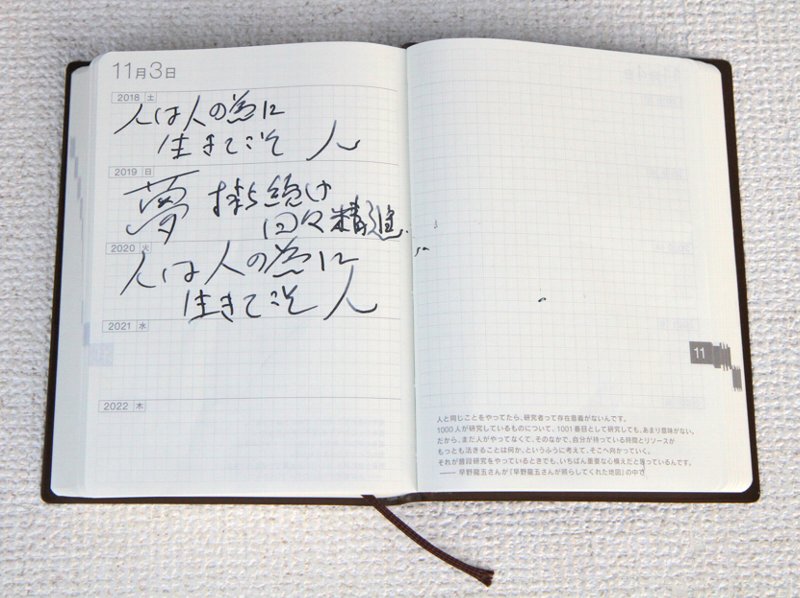 11月3日
2018 土
人は人の為に
生きてこそ 人
2019 日
夢 持ち続け
日々精進.
2020 火
人は人の為に
生きてこそ 人
2021 水
2022 木
11
人と同じことをやってたら、研究者って存在意義がないんです。
1000人が研究しているものについて、1001番目として研究しても、あまり意味がない。
だから、まだ人がやってなくて、そのなかで、自分が持っている時間とリソースが
もっとも活きることは何か、というふうに考えて、そこへ向かっていく。
それが普段研究をやっているときでも、いちばん重要な心構えだと思っているんです。
—— 早野龍五さんが『早野龍五さんが照らしてくれた地図』の中で